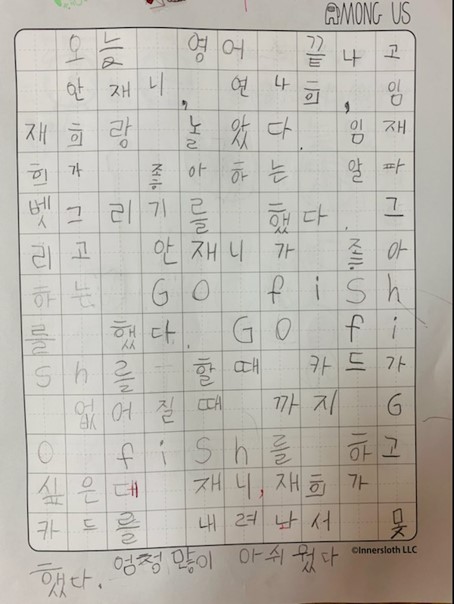 AMONG US
오늘 영어 끝나고
안재니, 연나희, 임
재희랑 놀았다. 임재
희가 좋아하는 알파
벳그리기를 했다. 그
리고 안재니가 좋아
하는 GO fiSh
를 했다. GO fi
Sh를 할때 카드가
없어질때까지 G
O fiSh를 하고
싶은대 재니, 재희가
카드를 내려놔서 못
했다. 엄청많이 아쉬웠다
©Innersloth LLC